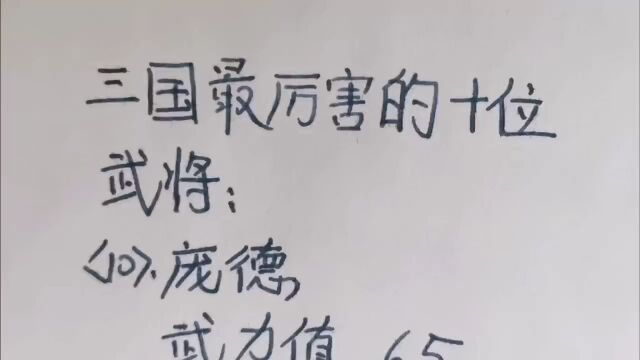 三国最厉害的十位
武将:
<10>.庞德,
武力值 65